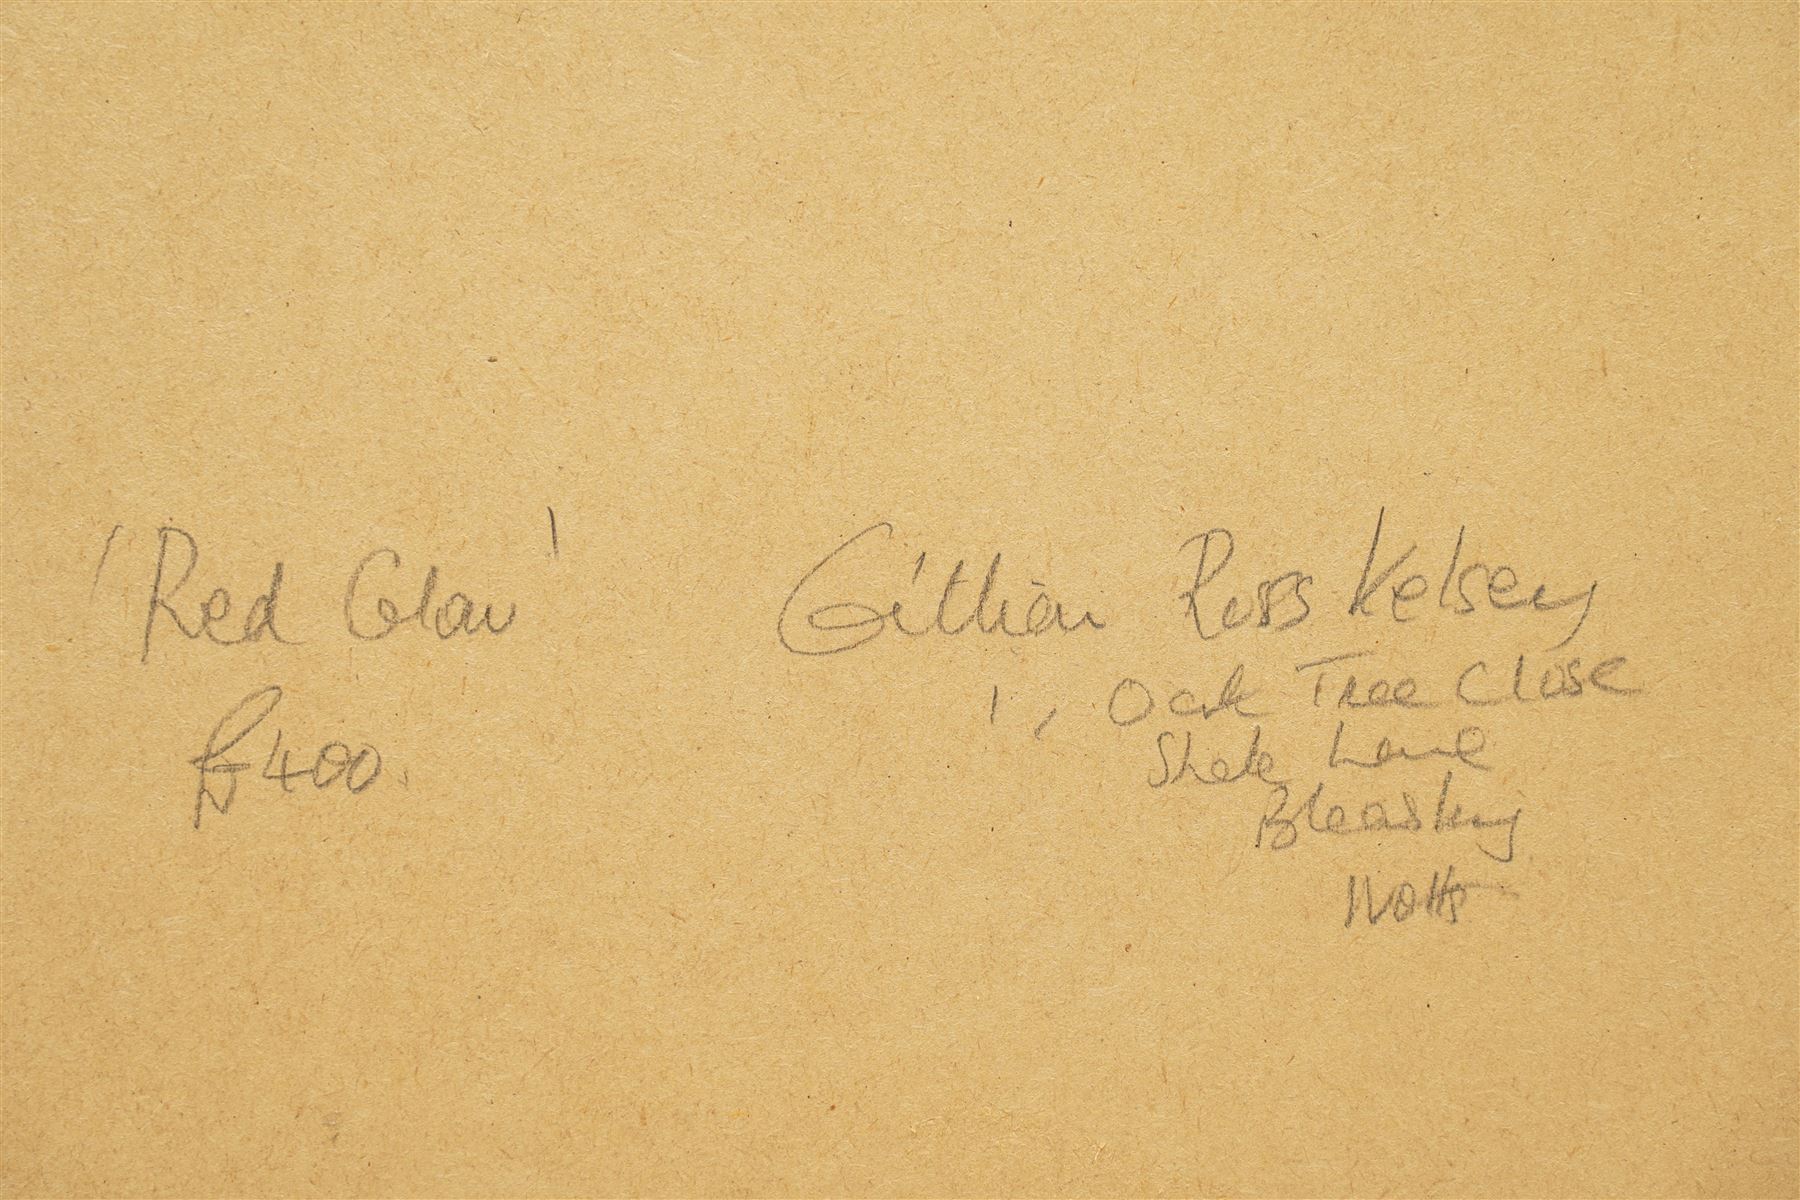 'Red Glow'
£400.
Gillian Ross Kelsey
1, Oak Tree Close
Lane
Bleasby
Notts